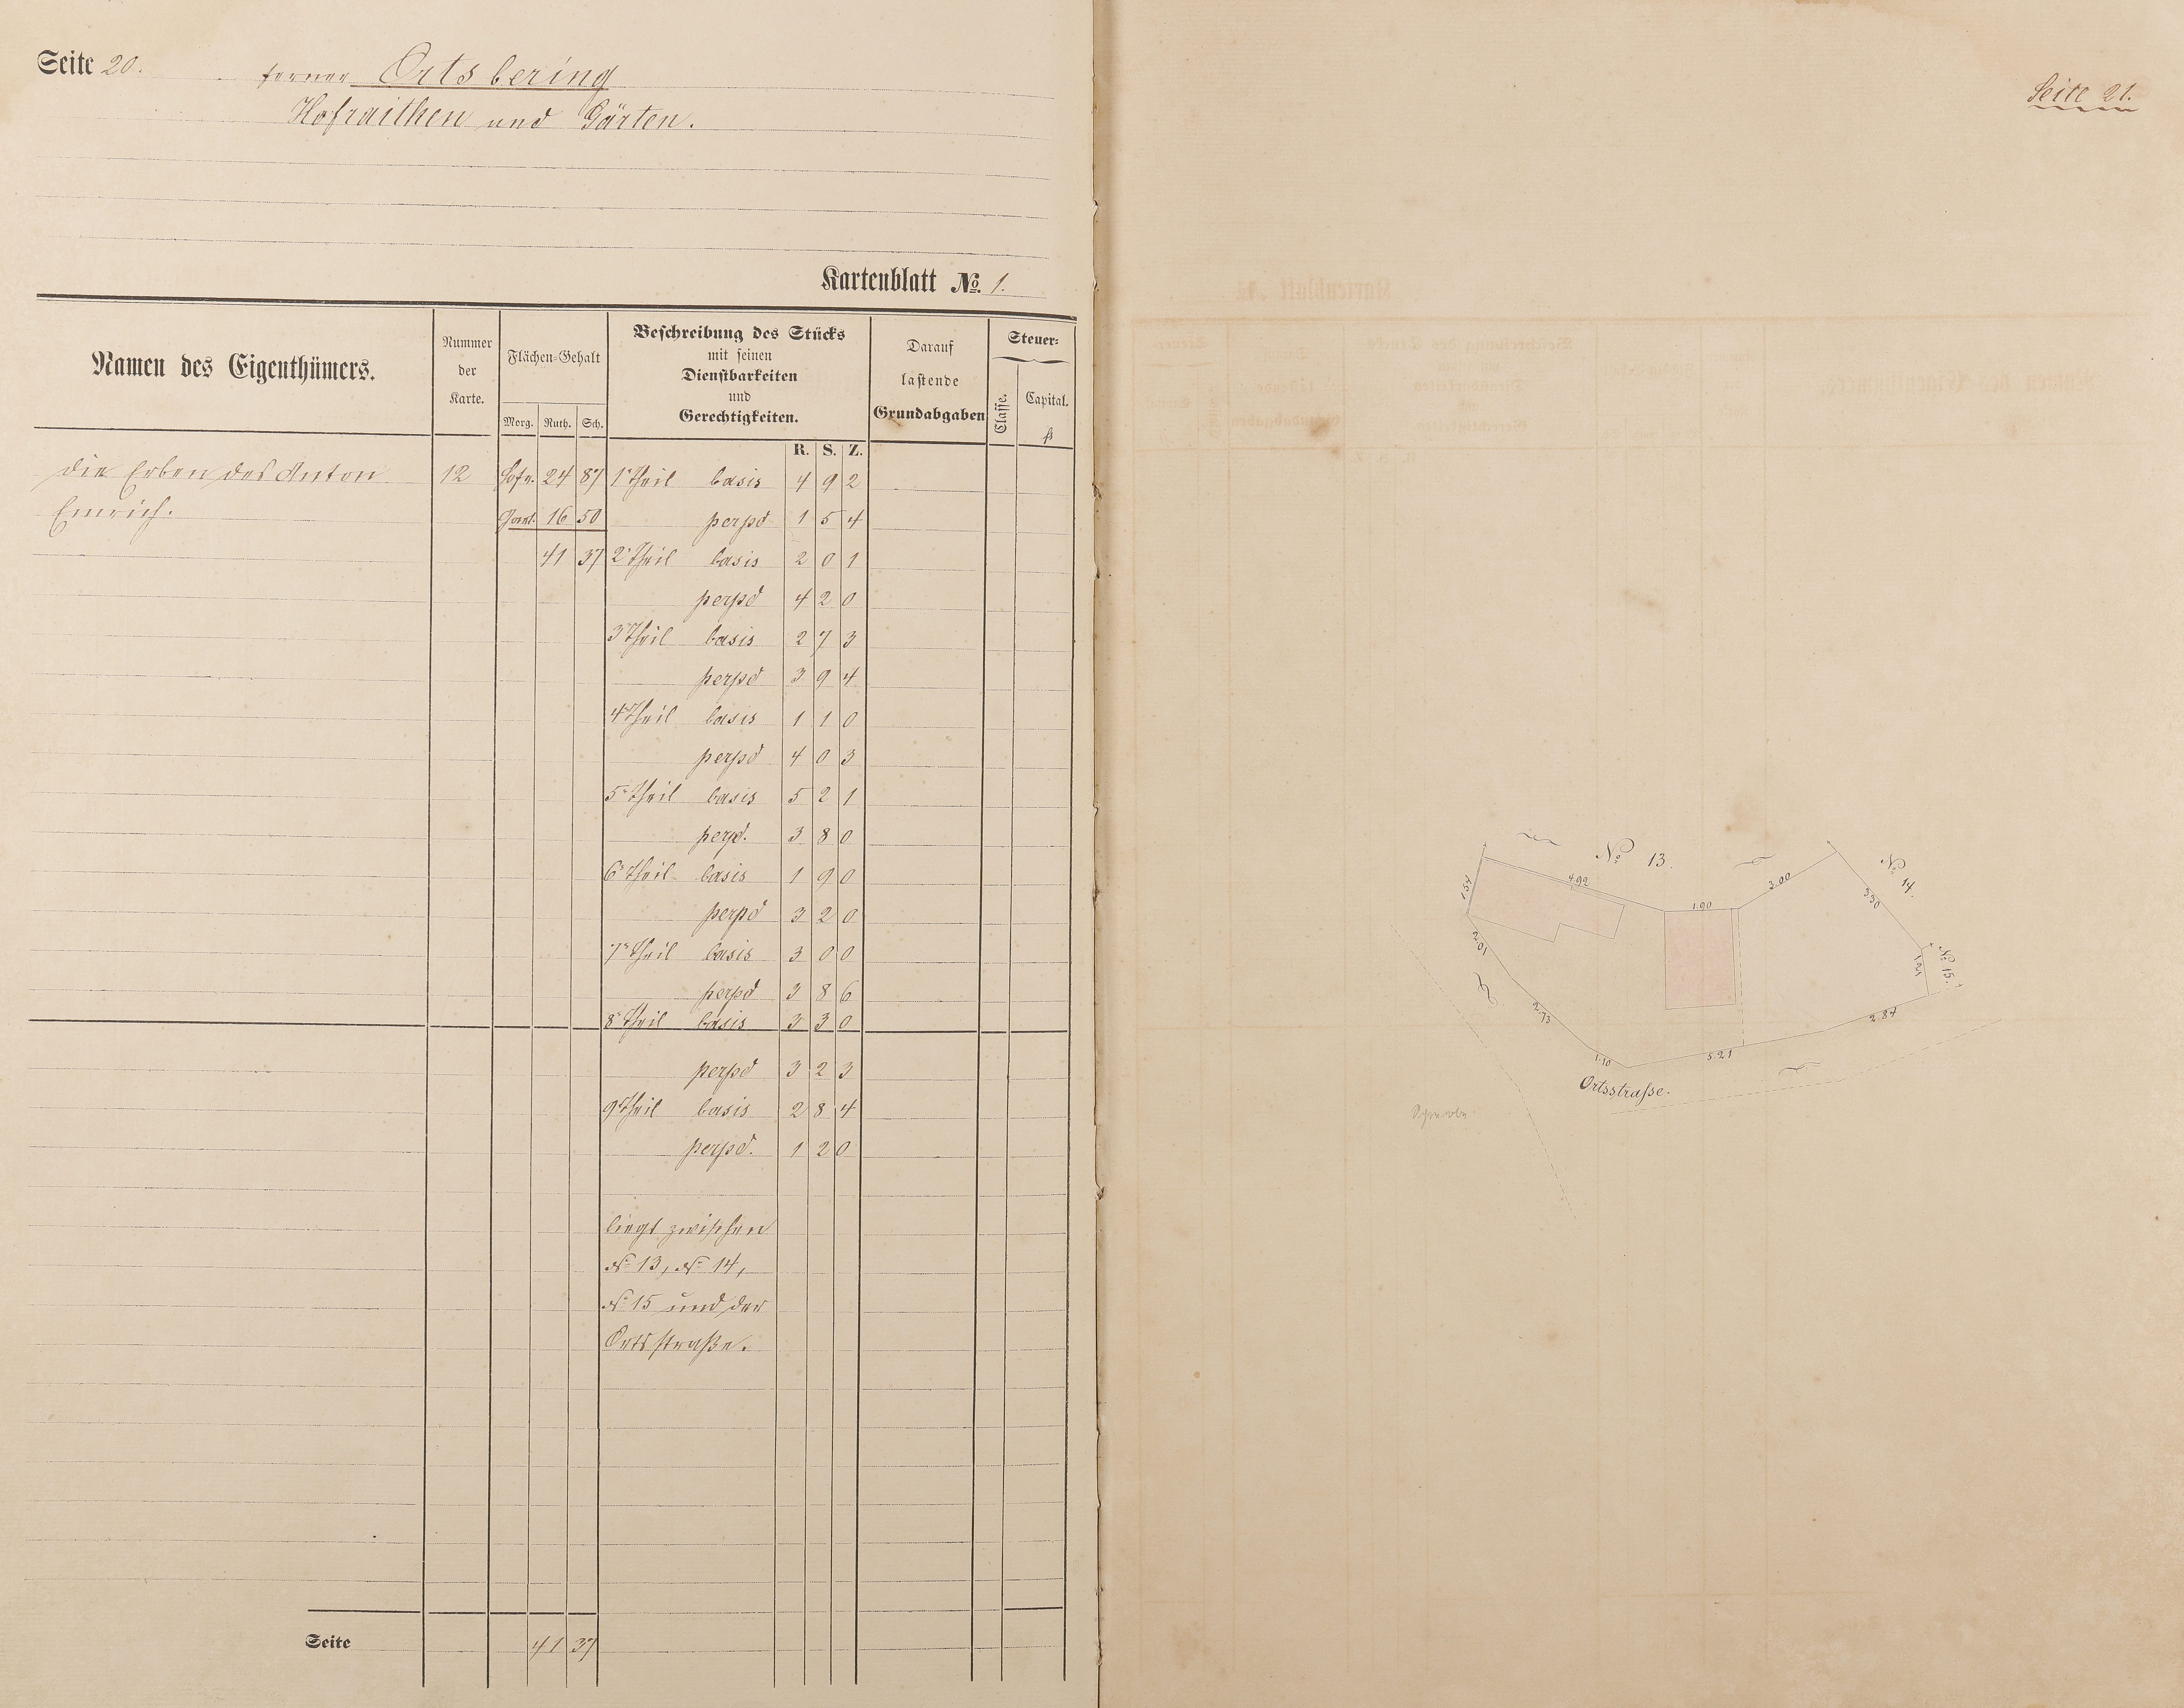 Seite 20.
ferner Ortsbering
Hofraithen und Gärten.
Kartenblatt No. 1.
Namen des Eigenthümers.
Nummer der Karte.
Flächen-Gehalt
Morg. Ruth. Sch.
Beschreibung des Stücks
mit seinen
Dienstbarkeiten
und
Gerechtigkeiten.
Darauf
lastende
Grundabgaben
Steuer-
Classe.
Capital.
fl
R. S. Z.
die Erben des Anton 12 Hofr. 24 87 1r Theil basis 4 9 2
Emrich. Gart. 16 50 perpd 1 5 4
41 37 2r Theil basis 2 0 1
perpd 4 2 0
3r Theil basis 2 7 3
perpd 3 9 4
4r Theil basis 1 1 0
perpd 4 0 3
5r Theil basis 5 2 1
perpd. 3 8 0
6r Theil basis 1 9 0
perpd 3 2 0
7r Theil basis 3 0 0
perpd 3 8 6
8r Theil basis 3 3 0
perpd 3 2 3
9r Theil basis 2 8 4
perpd. 1 2 0
liegt zwischen
No 13, No 14,
No 15 und der
Ortsstraße.
Seite 41 37
Seite 21.
No 13.
No 14.
No 15.
1.54
4.92
1.90
3.00
3.30
2.01
2.73
1.10
5.21
2.84
Ortsstraße.